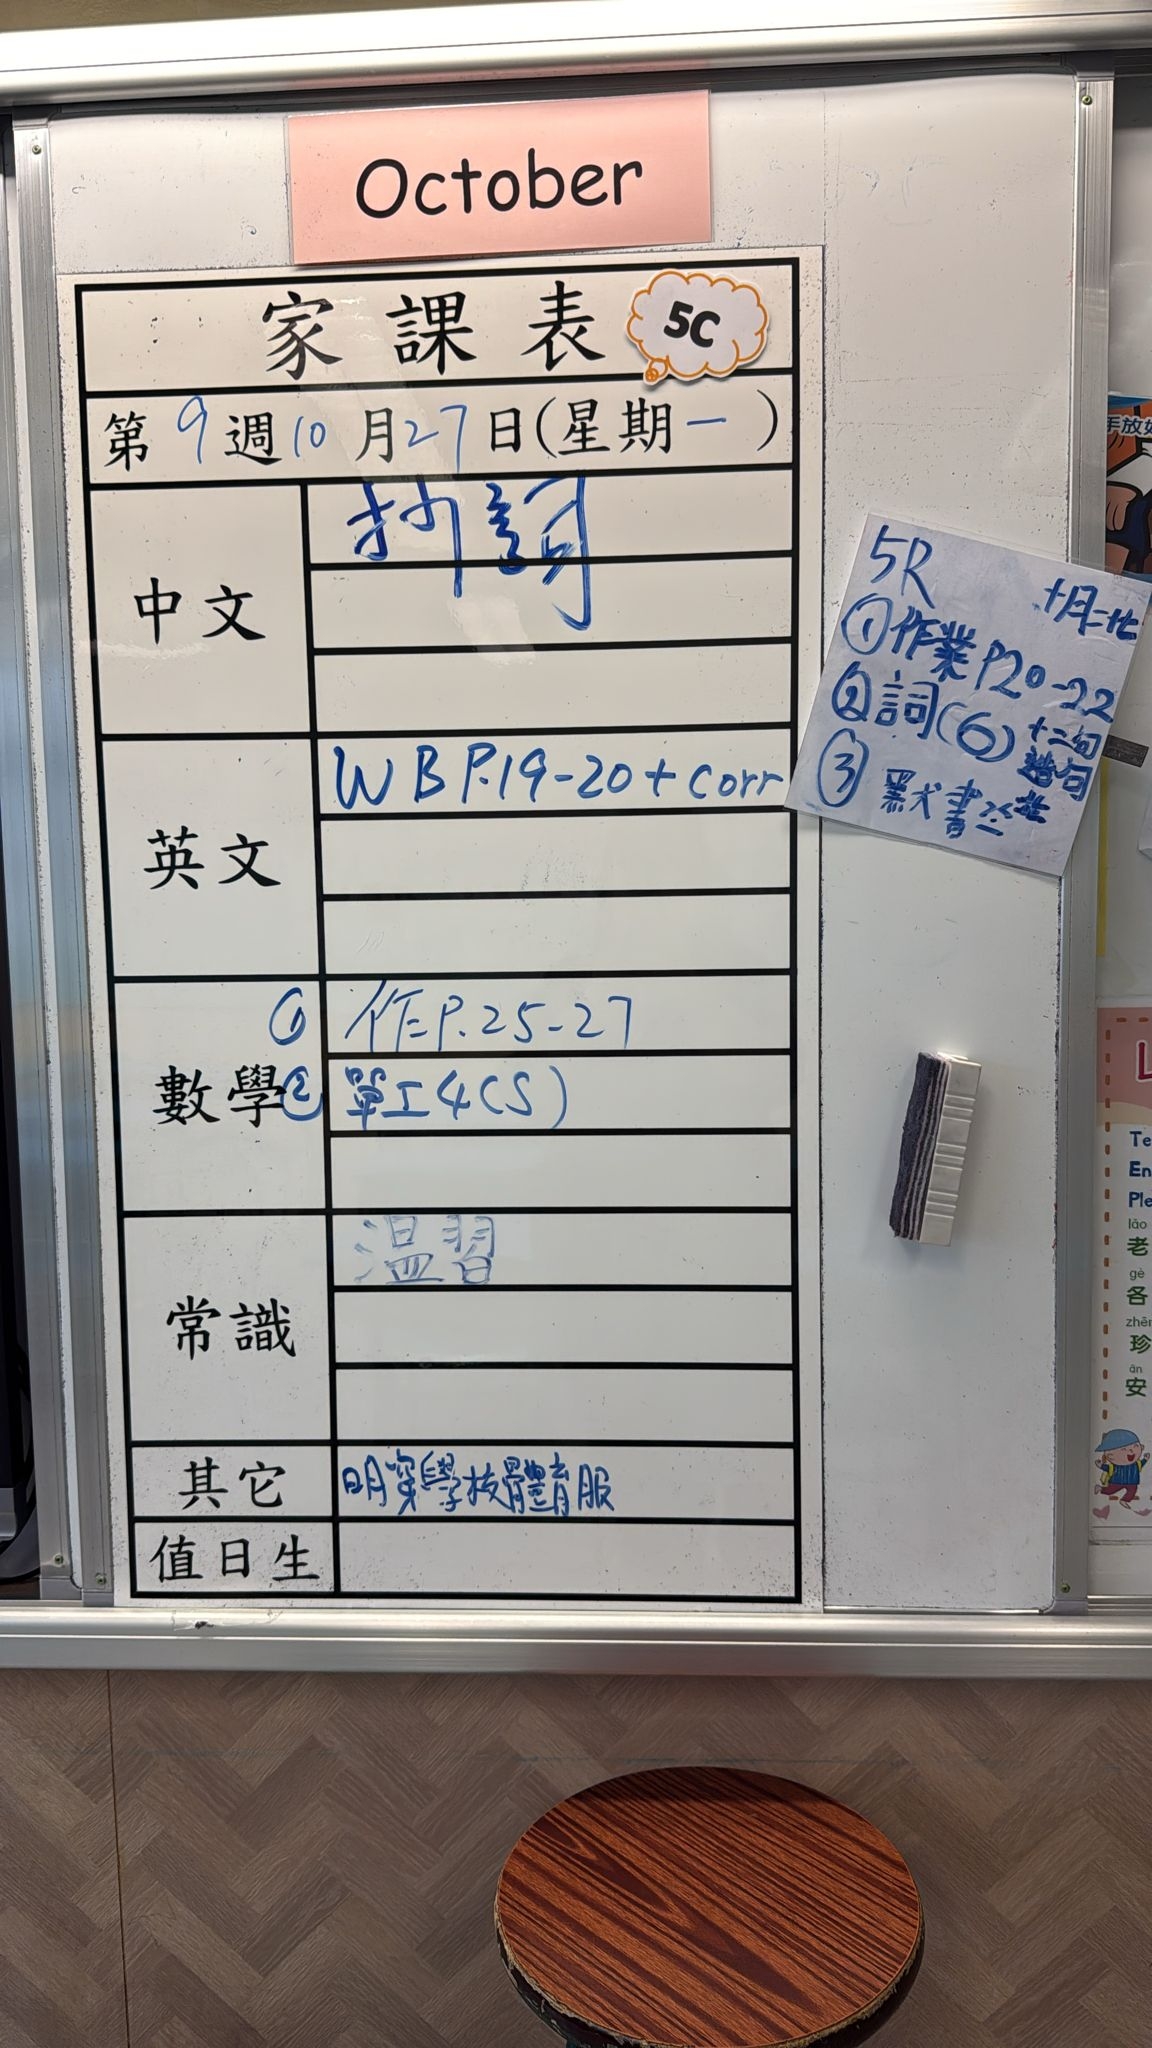 October
家課表 5C
第9週10月27日(星期一)
中文
抄詞
英文
WB P.19-20 + corr
數學
① 作P.25-27
② 單工4(S)
常識
溫習
其它
明穿學校體育服
值日生
5R
十月二廿
①作業P20-22
②詞(6)
造句
③默書
手放
L
Te
En
Ple
lǎo
老
gè
各
zhēn
珍
ān
安